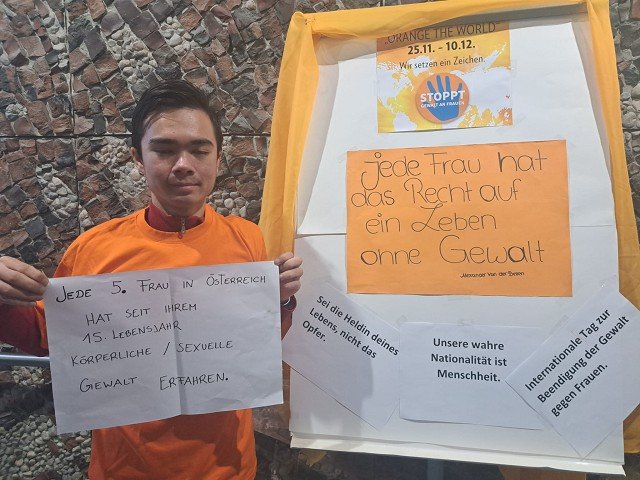 JEDE 5. FRAU IN ÖSTERREICH
HAT SEIT IHREM
15. LEBENSJAHR
KÖRPERLICHE / SEXUELLE
GEWALT ERFAHREN.
„ORANGE THE WORLD"
25.11. - 10.12.
Wir setzen ein Zeichen.
STOPPT
GEWALT AN FRAUEN
Jede Frau hat
das Recht auf
ein Leben
ohne Gewalt
Alexander Van der Bellen
Sei die Heldin deines
Lebens, nicht das
Opfer.
Unsere wahre
Nationalität ist
Menschheit.
Internationale Tag zur
Beendigung der Gewalt
gegen Frauen.